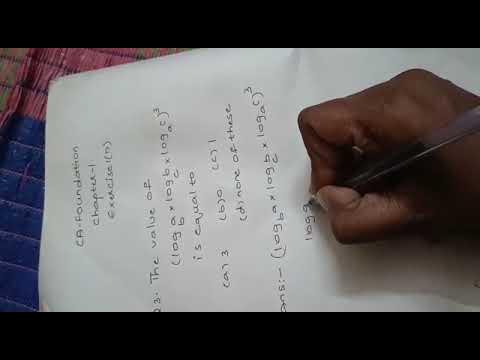 CA-Foundation
Chapter-1
Exercise 1(D)
23. The value of
(log_b a × log_c b × log_a c)^3
is equal to
(a) 3 (b) 0 (c) 1
(d) none of these
ans:- (log_b a × log_c b × log_a c)^3
log